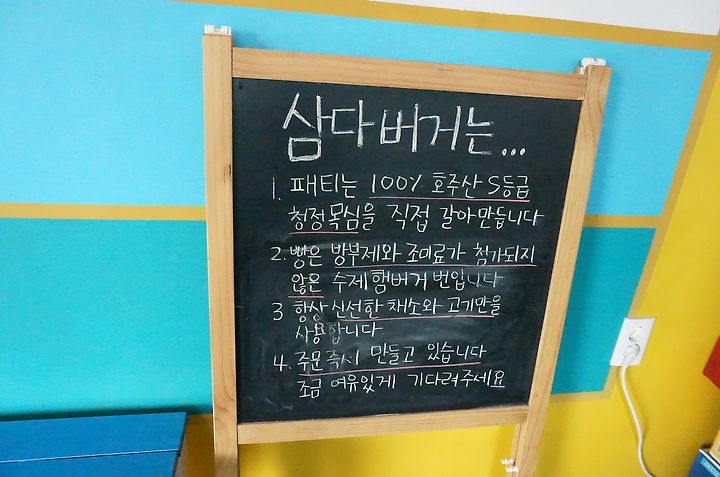 삼다버거는...
1. 패티는 100% 호주산 S등급
청정목심을 직접 갈아만듭니다
2. 빵은 방부제와 조미료가 첨가되지
않은 수제햄버거 번입니다
3 항상 신선한 채소와 고기만을
사용합니다.
4. 주문 즉시 만들고 있습니다
조금 여유있게 기다려주세요